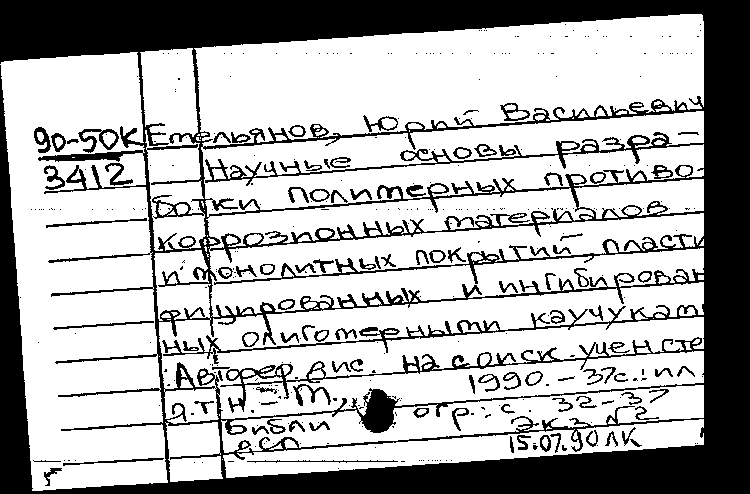 90-50К Емельянов, Юрий Васильевич
3412 Научные основы разра-
ботки полимерных противо-
коррозионных материалов
и монолитных покрытий, пласти
фицированных и ингибирован
ных олигомерными каучукам
: Автореф. дис. на соиск. учен. сте
д.т.н. - М., 1990. - 37с.: ил.
Библиогр.: с. 32-37
ДСП Экз. №2
15.07.90 ЛК